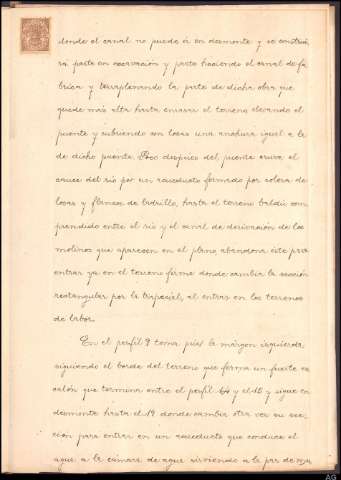 donde el canal no puede ir en desmonte y se construi
rá parte en excavación y parte haciendo el canal de fá
brica y terraplenando la parte de dicha obra que
quede más alta hasta enrasar el terreno elevando el
puente y cubriendo con losas una anchura igual a la
de dicho puente. Poco despues del puente cruza el
cauce del río por un acueducto formado por solera de
losas y flancos de ladrillo, hasta el terreno baldío com
prendido entre el río y el canal de derivación de los
molinos que aparecen en el plano, abandona éste para
entrar ya en el terreno firme donde cambia la sección
rectangular por la trapecial, al entrar en los terrenos
de labor.
En el perfil 9 toma pues la margen izquierda
siguiendo el borde del terreno que forma un fuerte es
calón que termina entre el perfil y el 15 y sigue en
desmonte hasta el 19 donde cambia otra vez su sec
ción para entrar en un acueducto que conduce el
agua a la cámara de agua sirviendo a la par de
AG